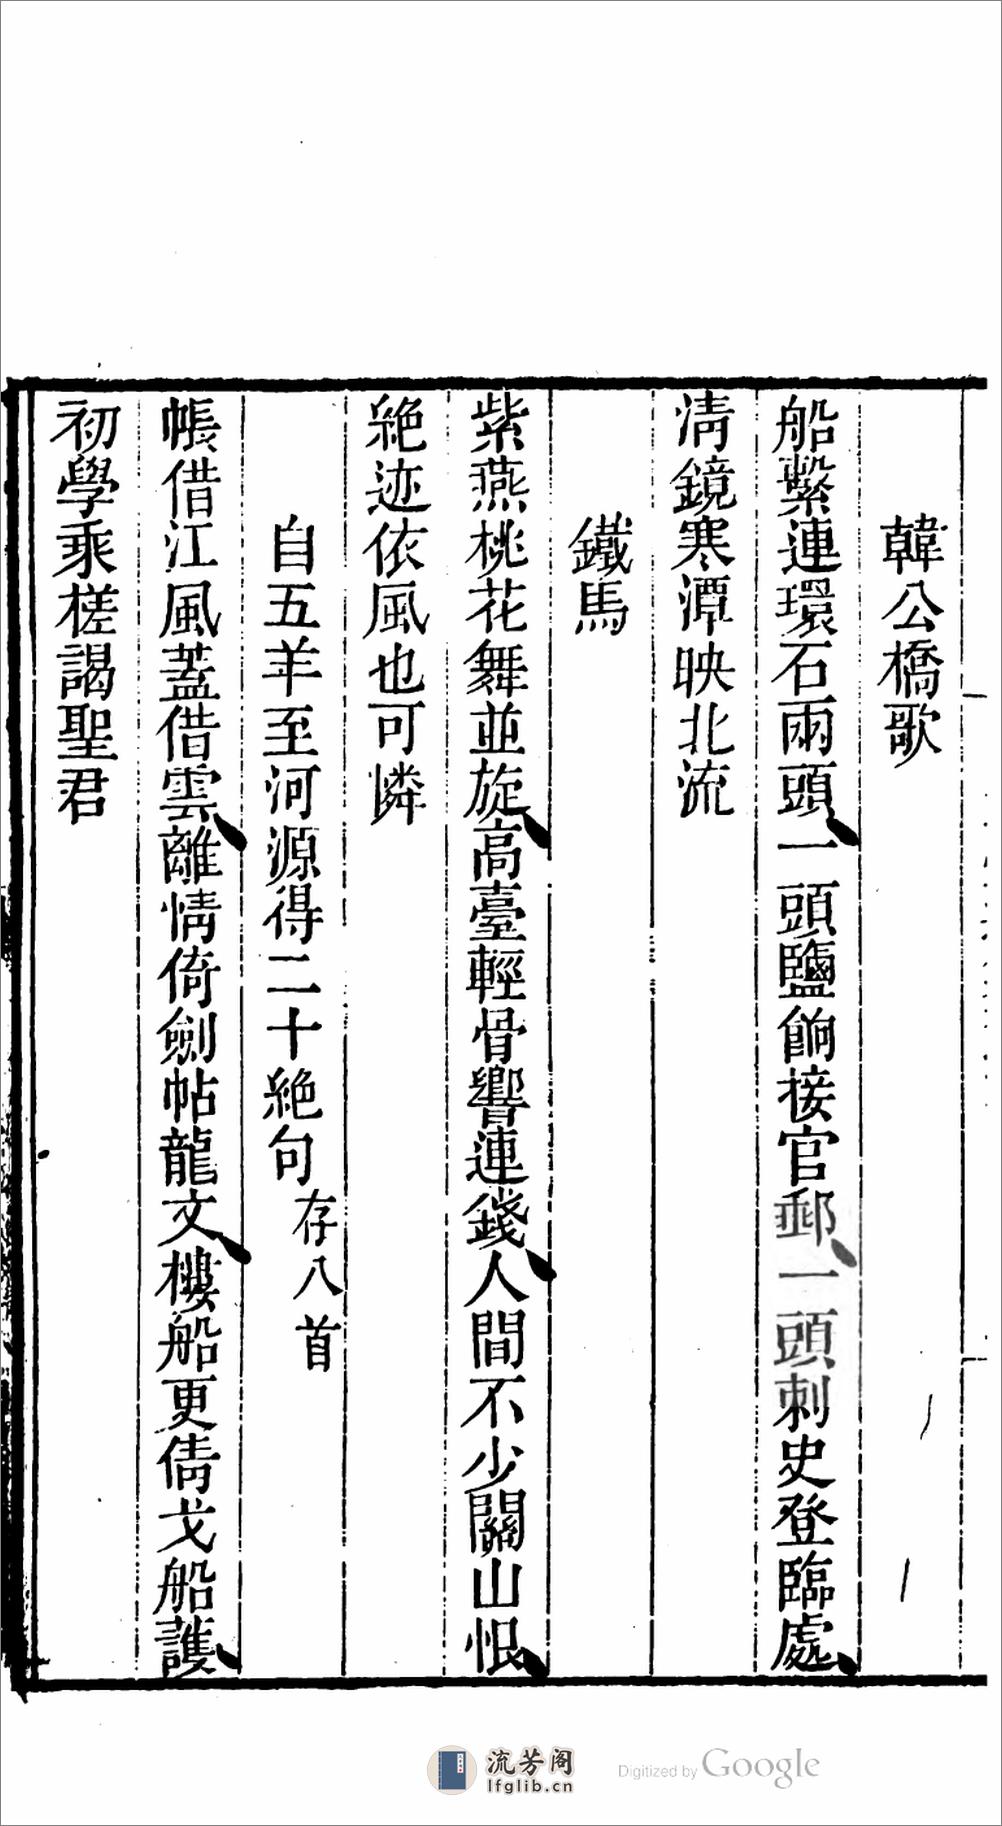 韓公橋歌
船繫連環石兩頭、一頭鹽餉接官郵、一頭刺史登臨處、
淸鏡寒潭映北流
鐵馬
紫燕桃花舞並旋、高臺輕骨響連錢、人間不少關山恨、
絶迹依風也可憐
自五羊至河源得二十絶句存八首
帳借江風蓋借雲、離情倚劍帖龍文、樓船更倩戈船護、
初學乘槎謁聖君
流芳阁
lfglib.cn
Digitized by Google